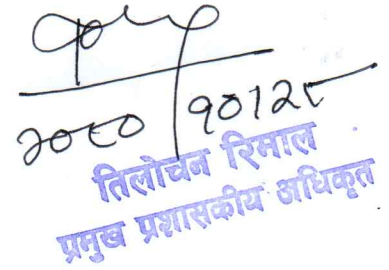 २०८०/१०/२८
तिलोचन रिमाल
प्रमुख प्रशासकीय अधिकृत